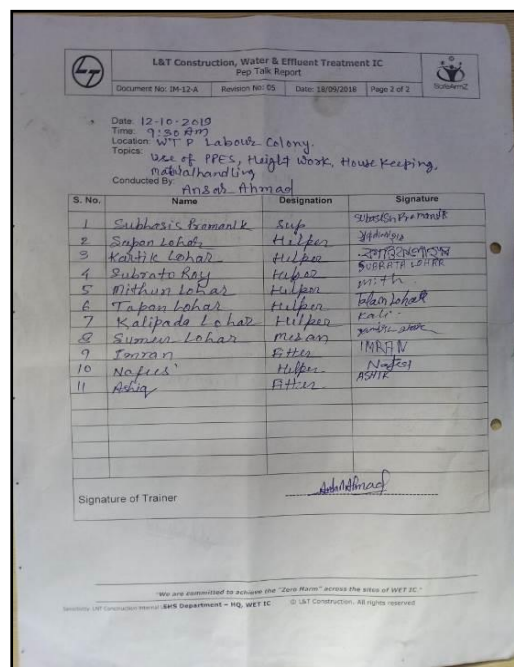 L&T Construction, Water & Effluent Treatment IC
Pep Talk Report
Document No: IM-12-A Revision No: 05 Date: 18/09/2016 Page 2 of 2
Date: 12-10-2019
Time: 9:30 AM
Location: WTP Labour Colony.
Topics:
Use of PPES, Height Work, House Keeping,
Conducted By:
Ansar Ahmad
S. No. Name Designation Signature
1 Subhasis Pramanik Sup
2 Sapan Lohar Hilper
3 Kartik Lohar Helper
4 Subrato Roy Helper SUBRATA LOHAR
5 Mithun Lohar Helper mith
6 Tapan Lohar Helper
7 Kalipada Lohar Hilper Kali
8 Sumen Lohar
9 Imran Fitter IMRAN
10 Nafees Helper
11 Ashiq Fitter ASHIK
Signature of Trainer
"We are committed to achieve the "Zero Harm" across the sites of WET IC "
SHS Department – HQ, WET IC © L&T Construction, All rights reserved